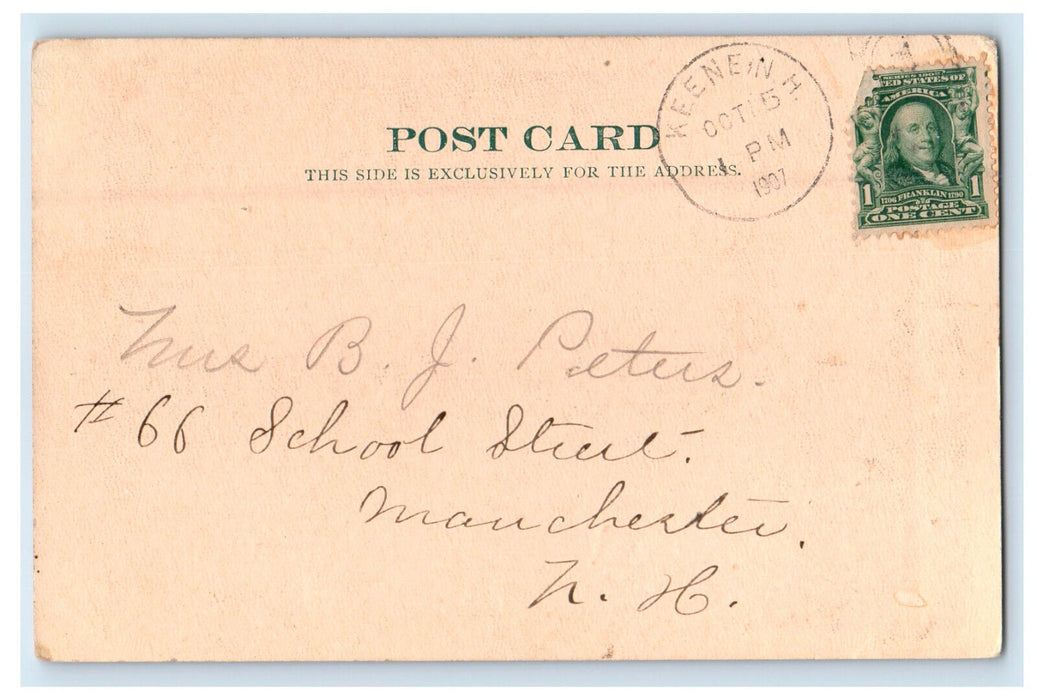 POST CARD
THIS SIDE IS EXCLUSIVELY FOR THE ADDRESS.
KEENE, N.H.
OCT 15
1 PM
1907
SERIES 1902
UNITED STATES OF
AMERICA
1 1706 FRANKLIN 1790 1
POSTAGE
ONE CENT
Mrs B. J. Peters.
# 66 School Street.
Manchester,
N. H.